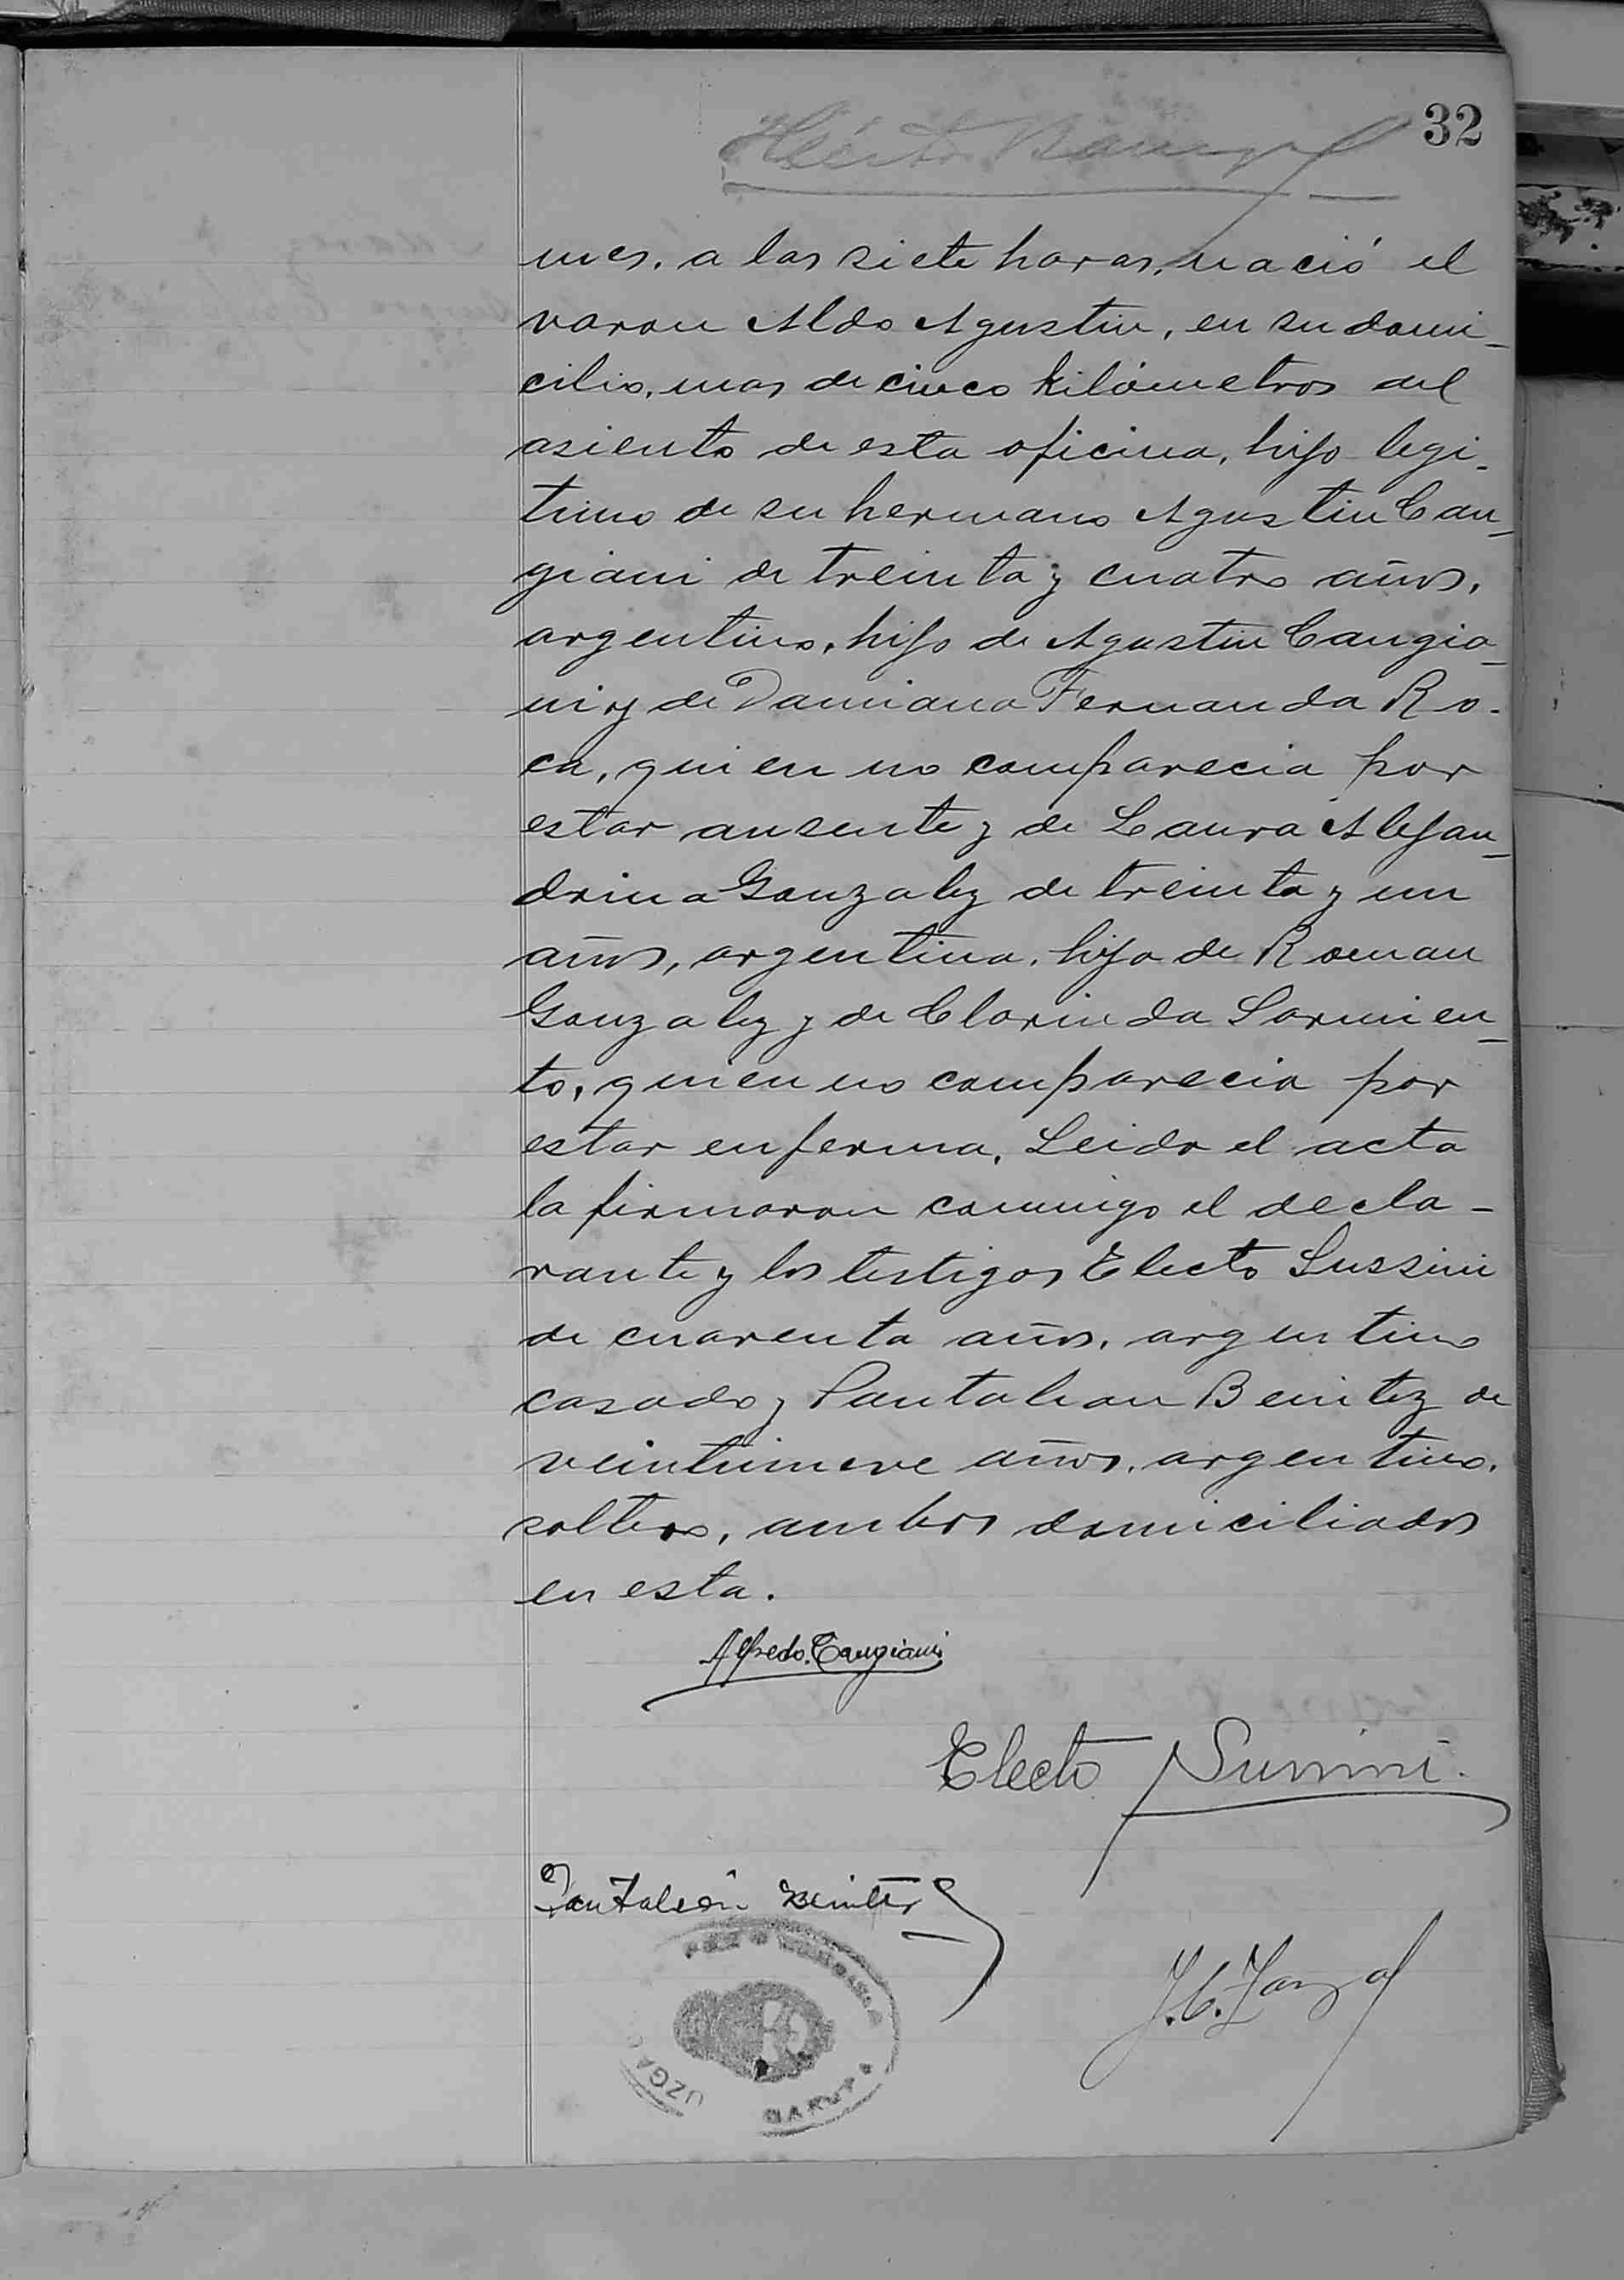 32
mes, a las siete horas, nació el
varon Aldo Agustin, en su domi-
cilio, mas de cinco kilómetros del
asiento de esta oficina, hijo legi-
timo de su hermano Agustin Can-
giani de treinta y cuatro años,
argentino, hijo de Agustin Cangia-
ni y de Damiana Fernanda Ro-
ca, quien no comparecia por
estar ausente y de Laura Alejan-
drina Gonzalez de treinta y un
años, argentina, hija de Roman
Gonzalez y de Clorinda Sarmien-
to, quien no comparecia por
estar enferma. Leida el acta
la firmaron conmigo el decla-
rante y los testigos Electo Sussini
de cuarenta años, argentino
casado y Pantaleon Benitez de
veintinueve años, argentino,
soltero, ambos domiciliados
en esta.
Alfredo Cangiani
Electo Sussini.
Pantaleón Benitez